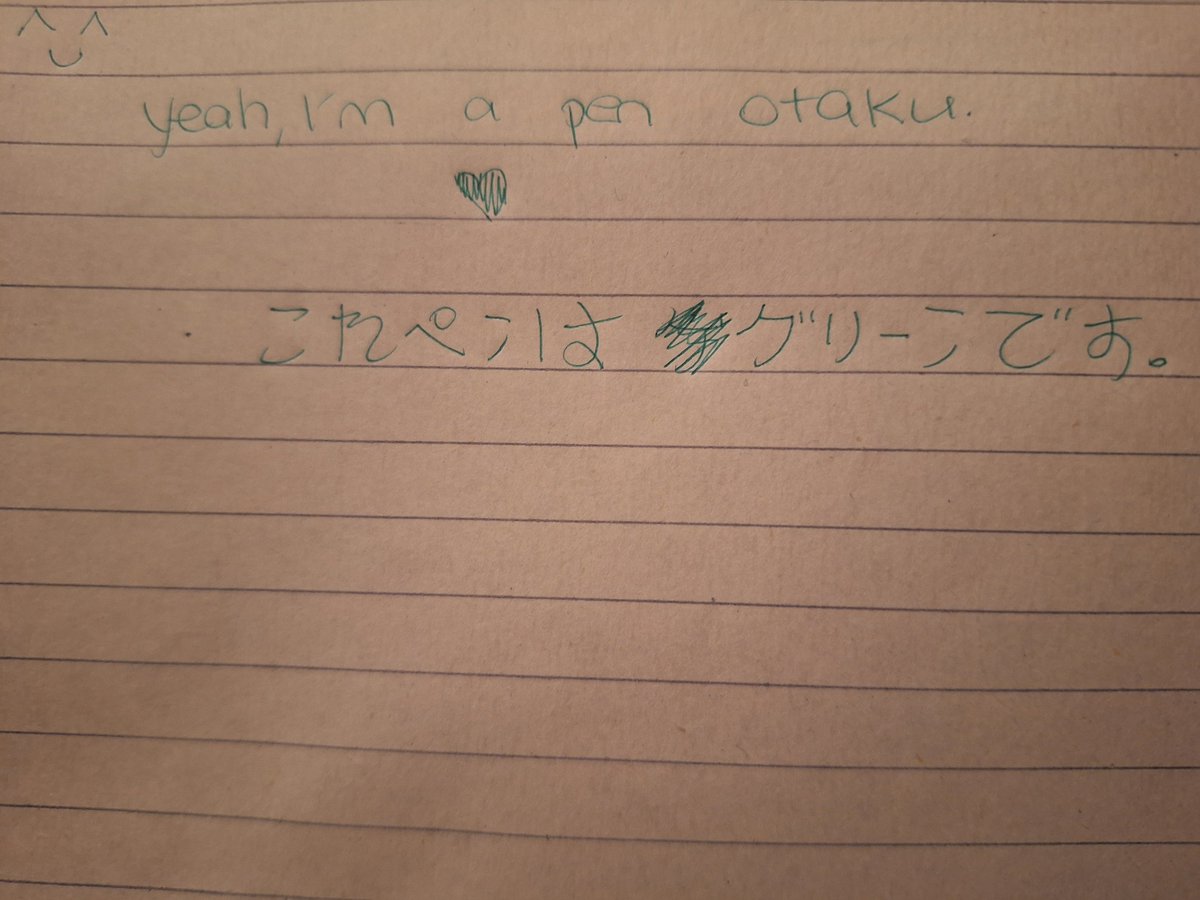 yeah, I'm a pen otaku.
これペンは グリーンです。